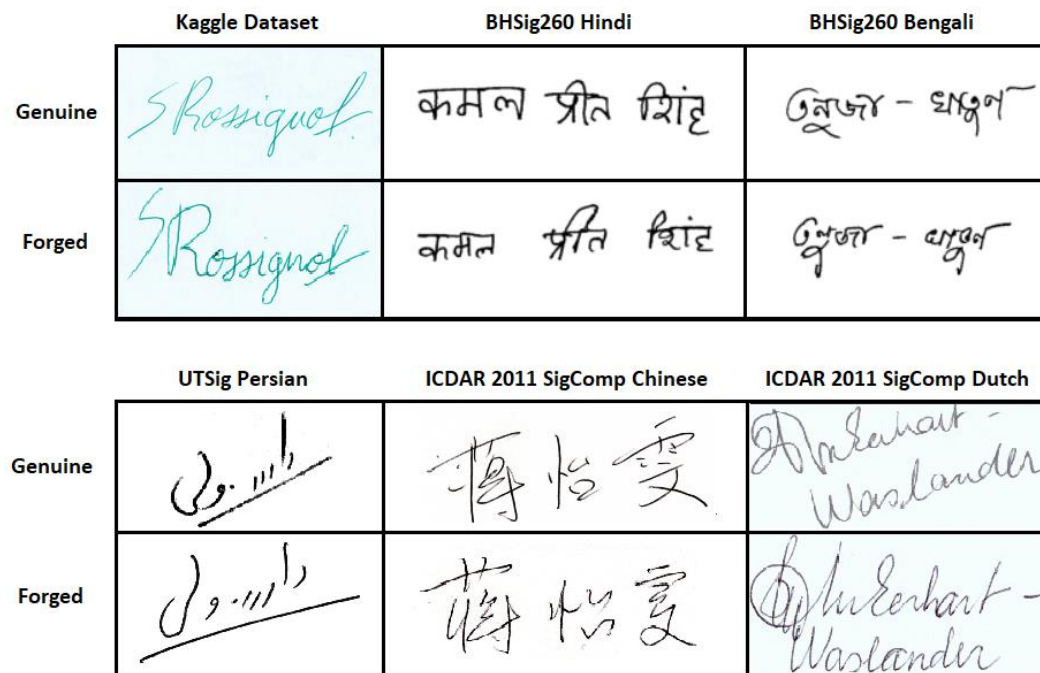 Kaggle Dataset BHSig260 Hindi BHSig260 Bengali
Genuine S Rossignol कमल प्रीत शिंह তনুজা - খাতুন
Forged S Rossignol कमल प्रीत शिंह তনুজা - খাতুন
UTSig Persian ICDAR 2011 SigComp Chinese ICDAR 2011 SigComp Dutch
Genuine 蒋怡雯
Waslander
Forged 蒋怡雯
Waslander